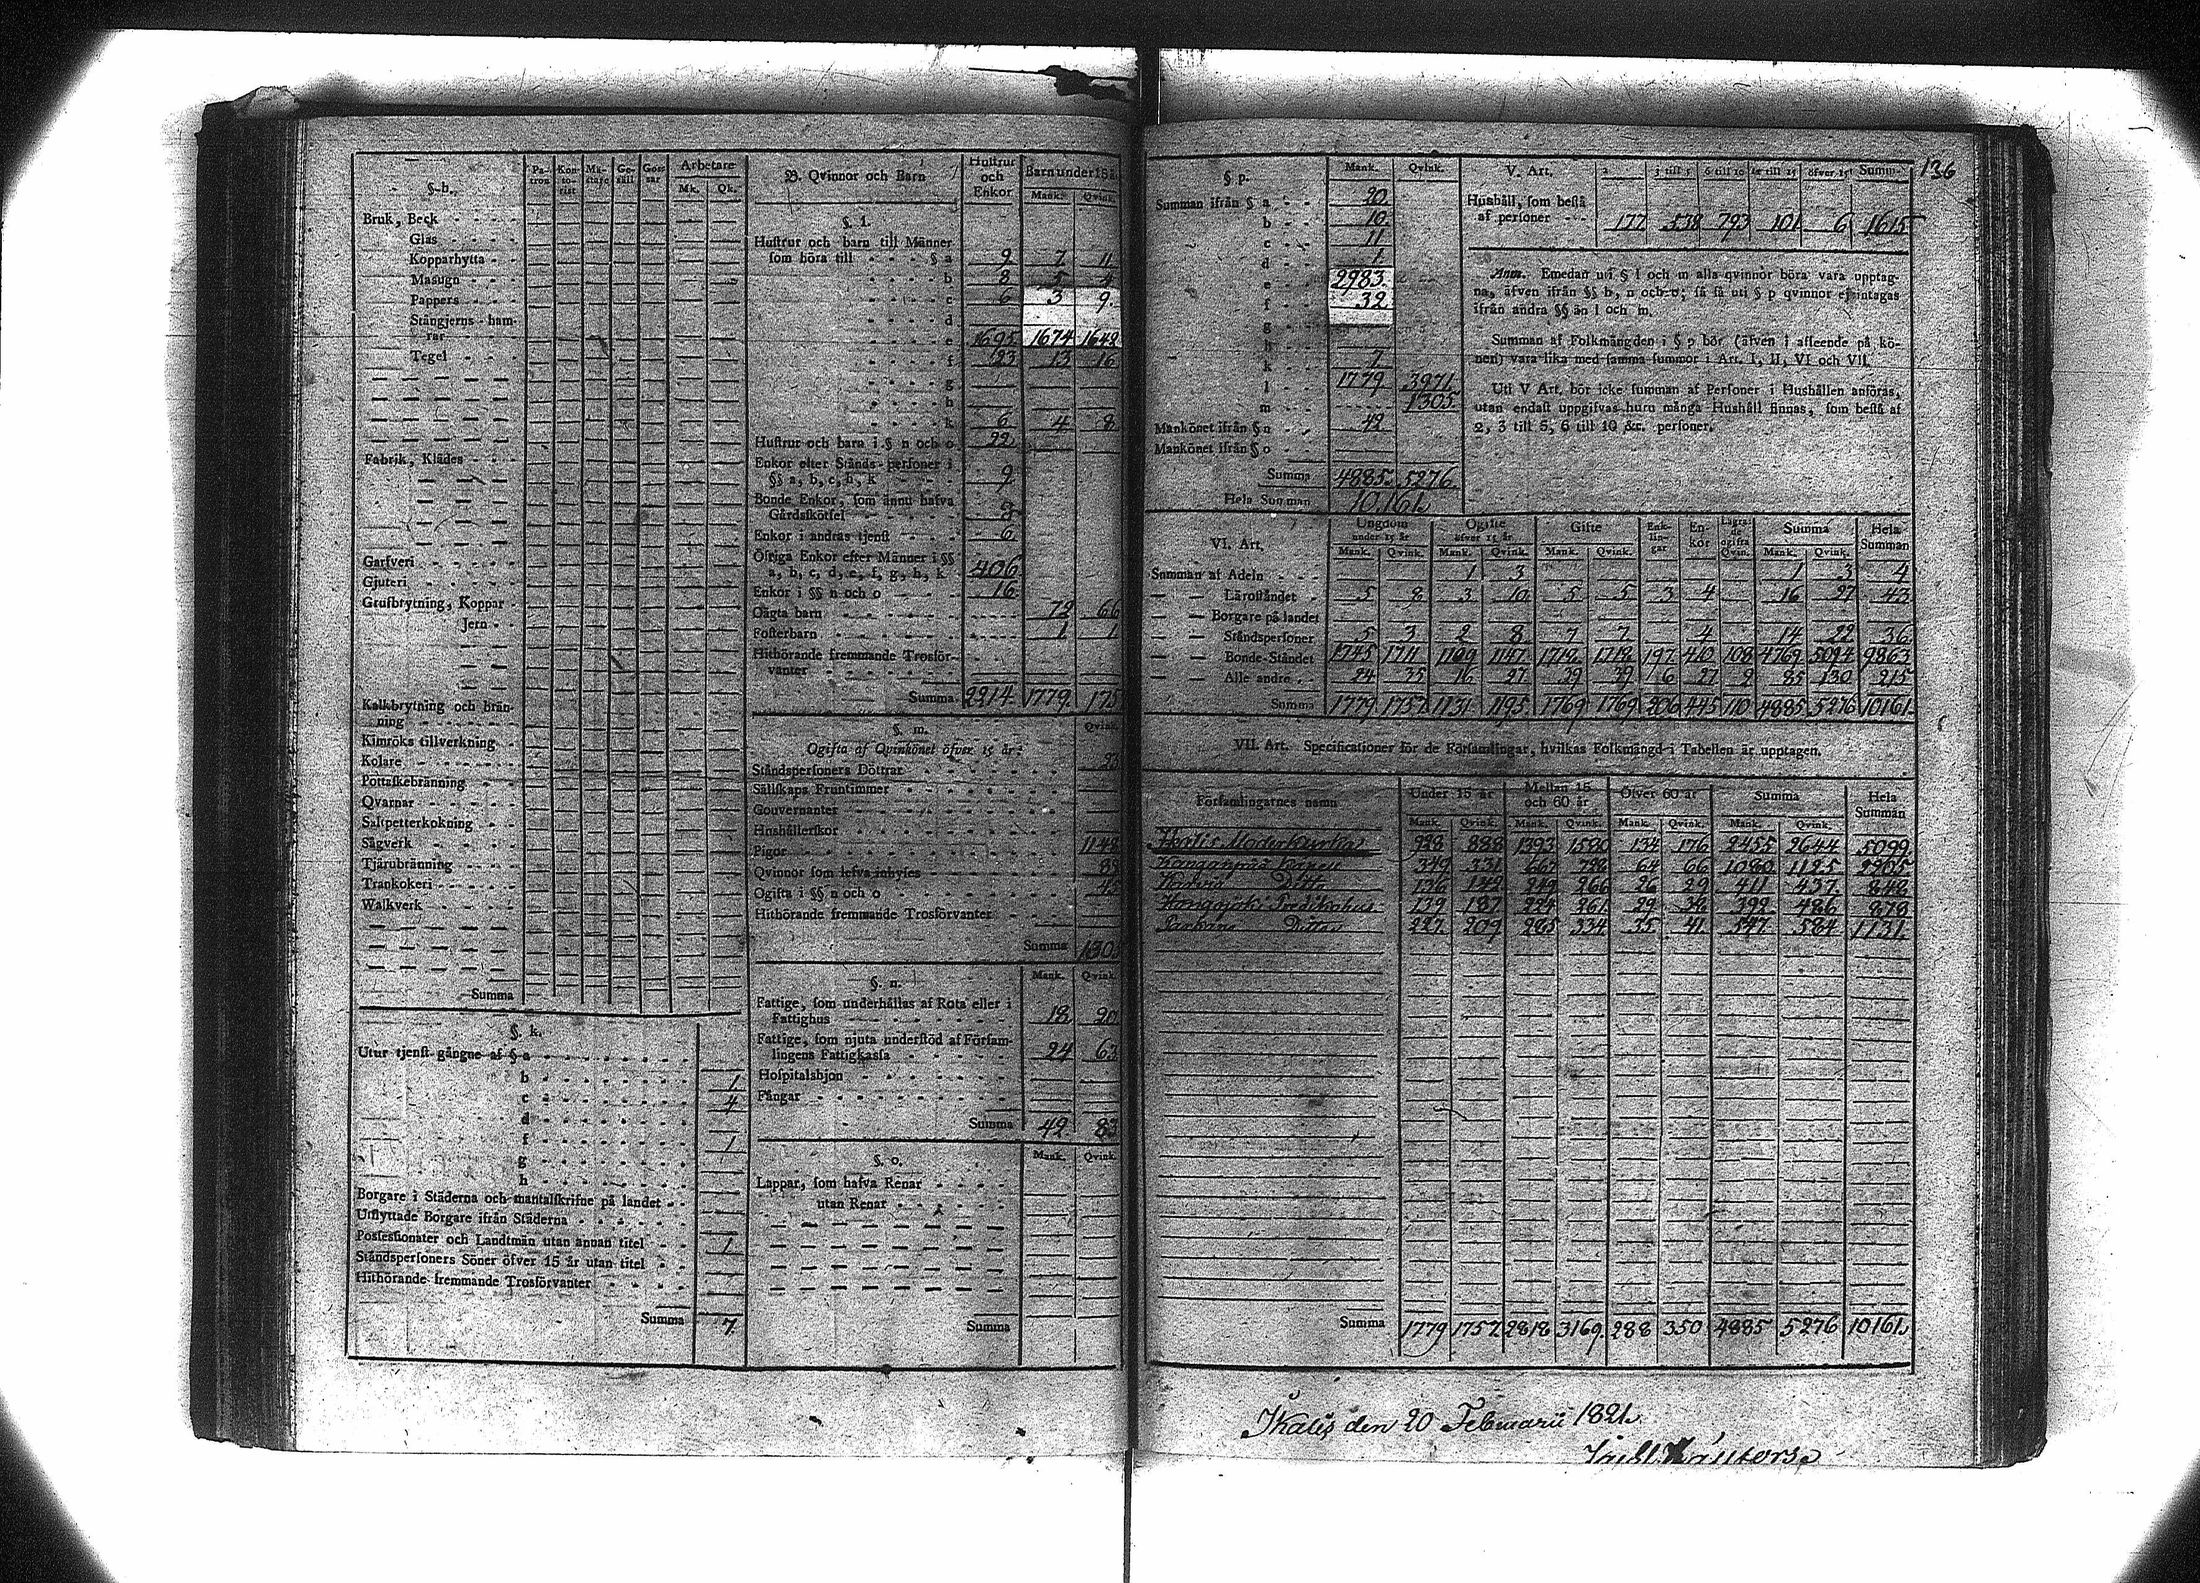 §. h.
Patron
Kontorist
Mästare
Gesäll
Gossar
Arbetare
Mk.
Qk.
Bruk, Beck
Glas
Kopparhytta
Masugn
Pappers
Stångjerns-ham-
rar
Tegel
Fabrik, Klädes
Garfveri
Gjuteri
Grufbrytning, Koppar
Jern
Kalkbrytning och brän-
ning
Kimröks tillverkning
Kolare
Pottaskebränning
Qvarnar
Saltpetterkokning
Sågverk
Tjärubränning
Trankokeri
Walkverk
Summa
§. k.
Utur tjenst gångne af § a
b 1.
c 4
d
f 1
g
h
Borgare i Städerna och mantalskrifne på landet
Utflyttade Borgare ifrån Städerna
Possessionater och Landtmän utan annan titel 1
Ståndspersoners Söner öfver 15 år utan titel
Hithörande fremmande Trosförvanter
Summa 7.
B. Qvinnor och Barn
Hustrur och Enkor
Barn under 15 å
Mank. Qvink.
§. l.
Hustrur och barn till Männer
som höra till § a 9 7 11
b 8 5 4
c 6 3 9.
d
e 1695 1674 1648
f 23 13 16
g
h
k 6 4 8
Hustrur och barn i § n och o 22
Enkor efter Stånds-personer i
§§ a, b, c, h, k 9
Bonde Enkor, som ännu hafva
Gårdsskötsel 8
Enkor i andras tjenst 6
Öfriga Enkor efter Männer i §§
a, b, c, d, e, f, g, h, k 406
Enkor i §§ n och o 16
Oägta barn 72 66
Fosterbarn 1 1
Hithörande fremmande Trosför-
vanter
Summa 2214 1779. 175
§. m.
Qvink.
Ogifta af Qvinkönet öfver 15 år:
Ståndspersoners Döttrar 23
Sällskaps Fruntimmer
Gouvernanter
Hushållerskor
Pigor 1148
Qvinnor som lefva inhyses 89
Ogifta i §§ n och o 45
Hithörande fremmande Trosförvanter
Summa 1305
§. n.
Mank. Qvink.
Fattige, som underhållas af Rota eller i
Fattighus 18 20
Fattige, som njuta understöd af Försam-
lingens Fattigkassa 24 63
Hospitalshjon
Fångar
Summa 42 83
§. o.
Mank. Qvink.
Lappar, som hafva Renar
utan Renar
Summa
136
§ p.
Mank. Qvink.
Summan ifrån § a 20.
b 10.
c 11
d 1.
e 2983.
f 32
g
h
k 7
l 1779 3971.
m 1305.
Mankönet ifrån § n 42
Mankönet ifrån § o
Summa 4885. 5276.
Hela Summan 10.161.
V. Art.
2 3 till 5 6 till 10 11 till 15 öfver 15 Summa
Hushåll, som bestå
af personer 177 538 793 101 6 1615
Anm. Emedan uti § l och m alla qvinnor böra vara upptag-
na, äfven ifrån §§ h, n och o; så få uti § p qvinnor ej intagas
ifrån andra §§ än l och m.
Summan af Folkmängden i § p bör (äfven i afseende på kö-
nen) vara lika med samma summor i Art. I, II, VI och VII.
Uti V Art. bör icke summan af Personer i Hushållen anföras,
utan endast uppgifvas huru många Hushåll finnas, som bestå af
2, 3 till 5, 6 till 10 &c. personer.
VI. Art.
Ungdom under 15 år
Ogifte öfver 15 år
Gifte
Enklingar
Enkor
Lägrade ogifta Qvin.
Summa
Hela Summan
Mank. Qvink. Mank. Qvink. Mank. Qvink. Mank. Qvink.
Summan af Adeln 1 3 1 3 4
Läroståndet 5 8 3 10 5 5 3 4 16 27 43
Borgare på landet
Ståndspersoner 5 3 2 8 7 7 4 14 22 36
Bonde-Ståndet 1745 1711 1109 1147 1718 1718 197 410 108 4769 5094 9863
Alle andre 24 35 16 27 39 39 6 27 2 85 130 215
Summa 1779 1757 1131. 1195. 1769 1769 206 445 110 4885 5276 10161.
VII. Art. Specificationer för de Församlingar, hvilkas Folkmängd i Tabellen är upptagen.
Församlingarnes namn
Under 15 år
Mellan 15 och 60 år
Öfver 60 år
Summa
Hela Summan
Mank. Qvink. Mank. Qvink. Mank. Qvink. Mank. Qvink.
Moderkyrka 928 888 1393 1580 134 176 2455 2644 5099.
Kanganpää Capell 349 331 667 728 64 66 1080 1125 2205.
Karvia Ditto 136 142 249 266 26 29 411 437. 848
Hongojoki Predikohus 139 187 224 261 29 38 392 486 878
Parkano Ditto 227. 209 285 334 35. 41. 547. 584 1131.
Summa 1779 1757. 2818 3169. 288 350 4885 5276 10161.
Ikalis den 20 Februarii 1821.